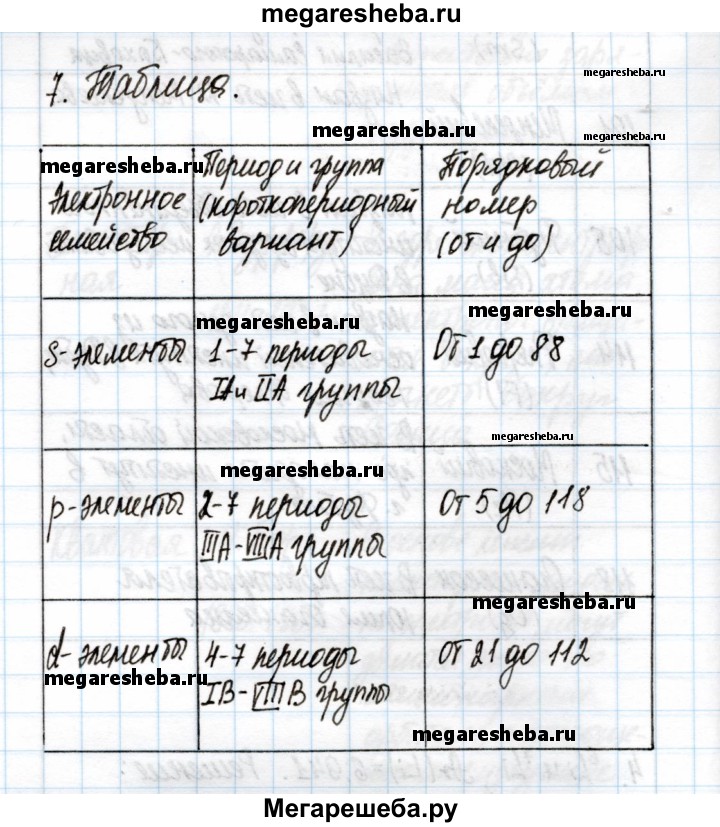 megaresheba.ru
7. Таблица.
megaresheba.ru
megaresheba.ru
megaresheba.ru
megaresheba.ru
Электронное
семейство
Период и группа
(короткопериодный
вариант)
Порядковый
номер
(от и до)
megaresheba.ru
megaresheba.ru
s-элементы
1-7 периоды
IA и IIA группы
От 1 до 88
megaresheba.ru
megaresheba.ru
p-элементы
2-7 периоды
IIIA-VIIIA группы
От 5 до 118
megaresheba.ru
d-элементы
megaresheba.ru
4-7 периоды
IB-VIIIB группы
От 21 до 112
megaresheba.ru
Мегарешеба.ру